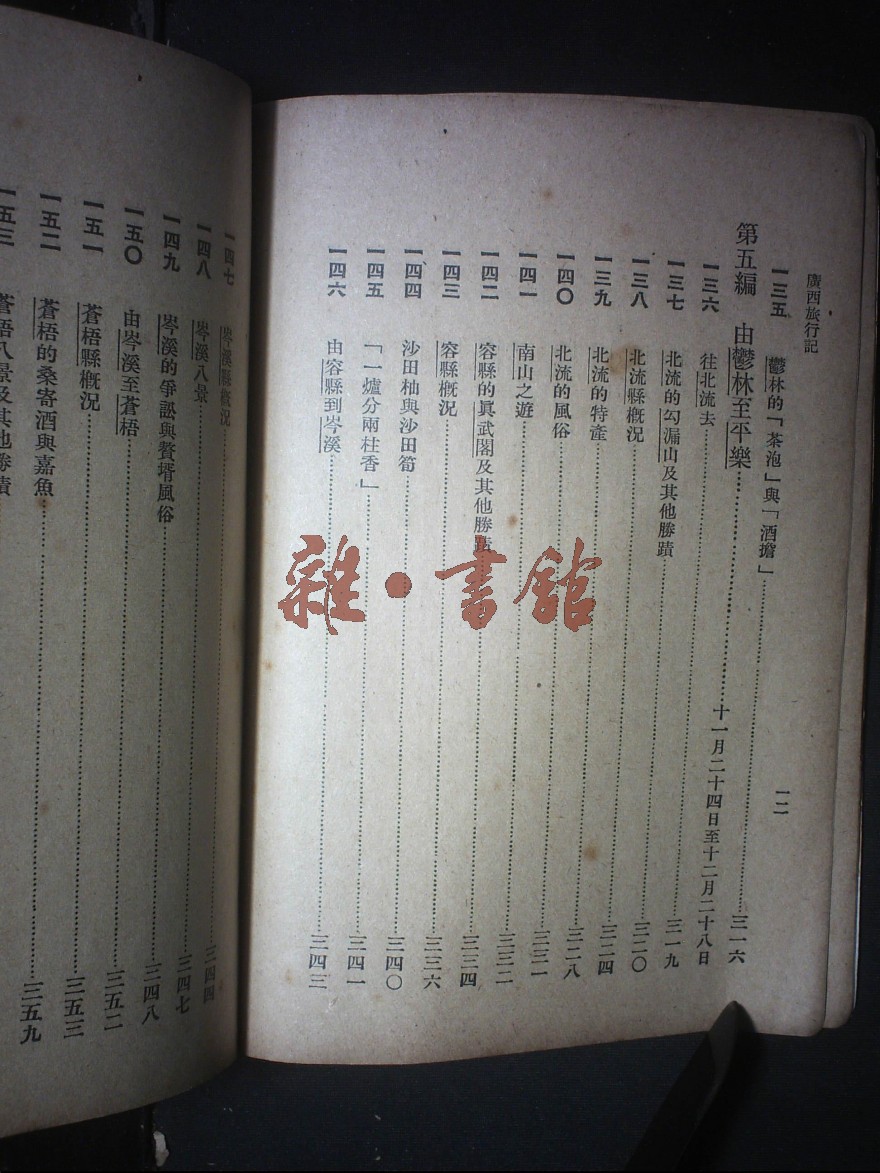 廣西旅行記
一二
一三五 鬱林的「茶泡」與「酒擔」……三一六
第五編 由鬱林至平樂……十一月二十四日至十二月二十八日
一三六 往北流去……三一九
一三七 北流的勾漏山及其他勝蹟……三二〇
一三八 北流縣概況……三二四
一三九 北流的特產……三二八
一四〇 北流的風俗……三三一
一四一 南山之遊……三三二
一四二 容縣的眞武閣及其他勝蹟……三三四
一四三 容縣概況……三三六
一四四 沙田柚與沙田筍……三四〇
一四五 「一爐分兩柱香」……三四一
一四六 由容縣到岑溪……三四三
一四七 岑溪縣概況……三四四
一四八 岑溪八景……三四七
一四九 岑溪的爭訟與贅壻風俗……三四八
一五〇 由岑溪至蒼梧……三五二
一五一 蒼梧縣概況……三五三
一五二 蒼梧的桑寄酒與嘉魚……三五九
一五三 蒼梧八景及其他勝蹟
雜·書館